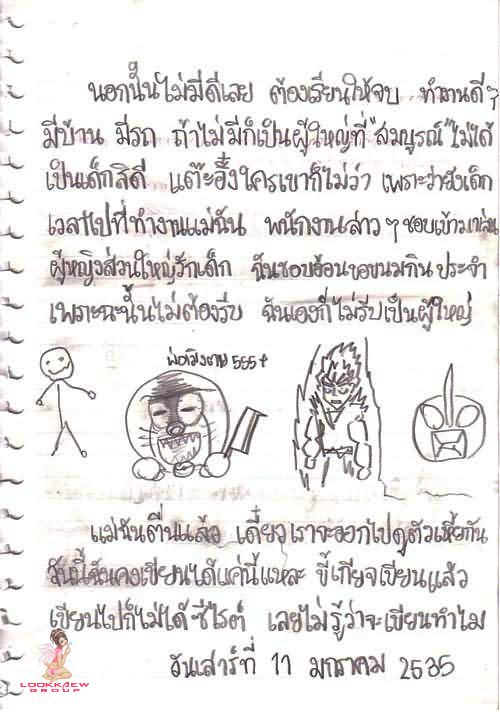 นอกนั้นไม่มีดีเลย ต้องเรียนให้จบ ทำงานดี ๆ
มีบ้าน มีรถ ถ้าไม่มีก็เป็นผู้ใหญ่ที่ "สมบูรณ์" ไม่ได้
เป็นเด็กสิดี แต๊ะอั๋งใครเขาก็ไม่ว่า เพราะว่ายังเด็ก
เวลาไปที่ทำงานแม่ฉัน พนักงานสาว ๆ ชอบเข้ามาเล่น
ผู้หญิงส่วนใหญ่รักเด็ก ฉันชอบอ้อนขอขนมกิน ประจำ
เพราะฉะนั้นไม่ต้องรีบ ฉันเองก็ไม่รีบเป็นผู้ใหญ่
พ่อมึงตาย 555+
แม่ฉันตื่นแล้ว เดี๋ยวเราจะออกไปดูตัวเหี้ยกัน
วันนี้ฉันคงเขียนได้แค่นี้แหละ ขี้เกียจเขียนแล้ว
เขียนไปก็ไม่ได้ซีไรต์ เลยไม่รู้ว่าจะเขียนทำไม
วันเสาร์ที่ 11 มกราคม 2535
LOOKKAEW
GROUP